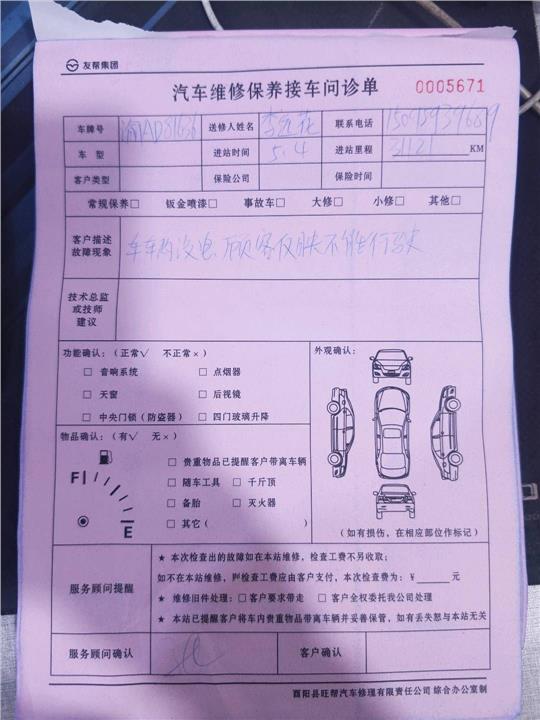 友帮集团
汽车维修保养接车问诊单 0005671
车牌号 渝AD 送修人姓名 联系电话
车 型 进站时间 5.4 进站里程 31121 KM
客户类型 保险公司 保险时间
常规保养□ 钣金喷漆□ 事故车□ 大修□ 小修□ 其他□
客户描述
故障现象
车 没电 顾客反映不能行驶
技术总监
或技师
建议
功能确认:(正常√ 不正常×)
□ 音响系统 □ 点烟器
□ 天窗 □ 后视镜
□ 中央门锁(防盗器) □ 四门玻璃升降
外观确认:
(如有损伤,在相应部位作标记)
物品确认:(有√ 无×)
F
E
□ 贵重物品已提醒客户带离车辆
□ 随车工具 □ 千斤顶
□ 备胎 □ 灭火器
□ 其它( )
服务顾问提醒
★ 本次检查出的故障如在本站维修,检查工费不另收取;
如不在本站维修,则检查工费应由客户支付,本次检查费为:¥______元
★ 维修旧件处理:□ 客户要求带走 □ 客户全权委托我公司处理
★ 本站已提醒客户将车内贵重物品带离车辆并妥善保管,如有丢失恕与本站无关
服务顾问确认 客户确认
酉阳县旺帮汽车修理有限责任公司 综合办公室制